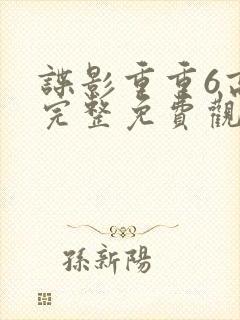 諜影重重6高
完整免費觀
孫新陽